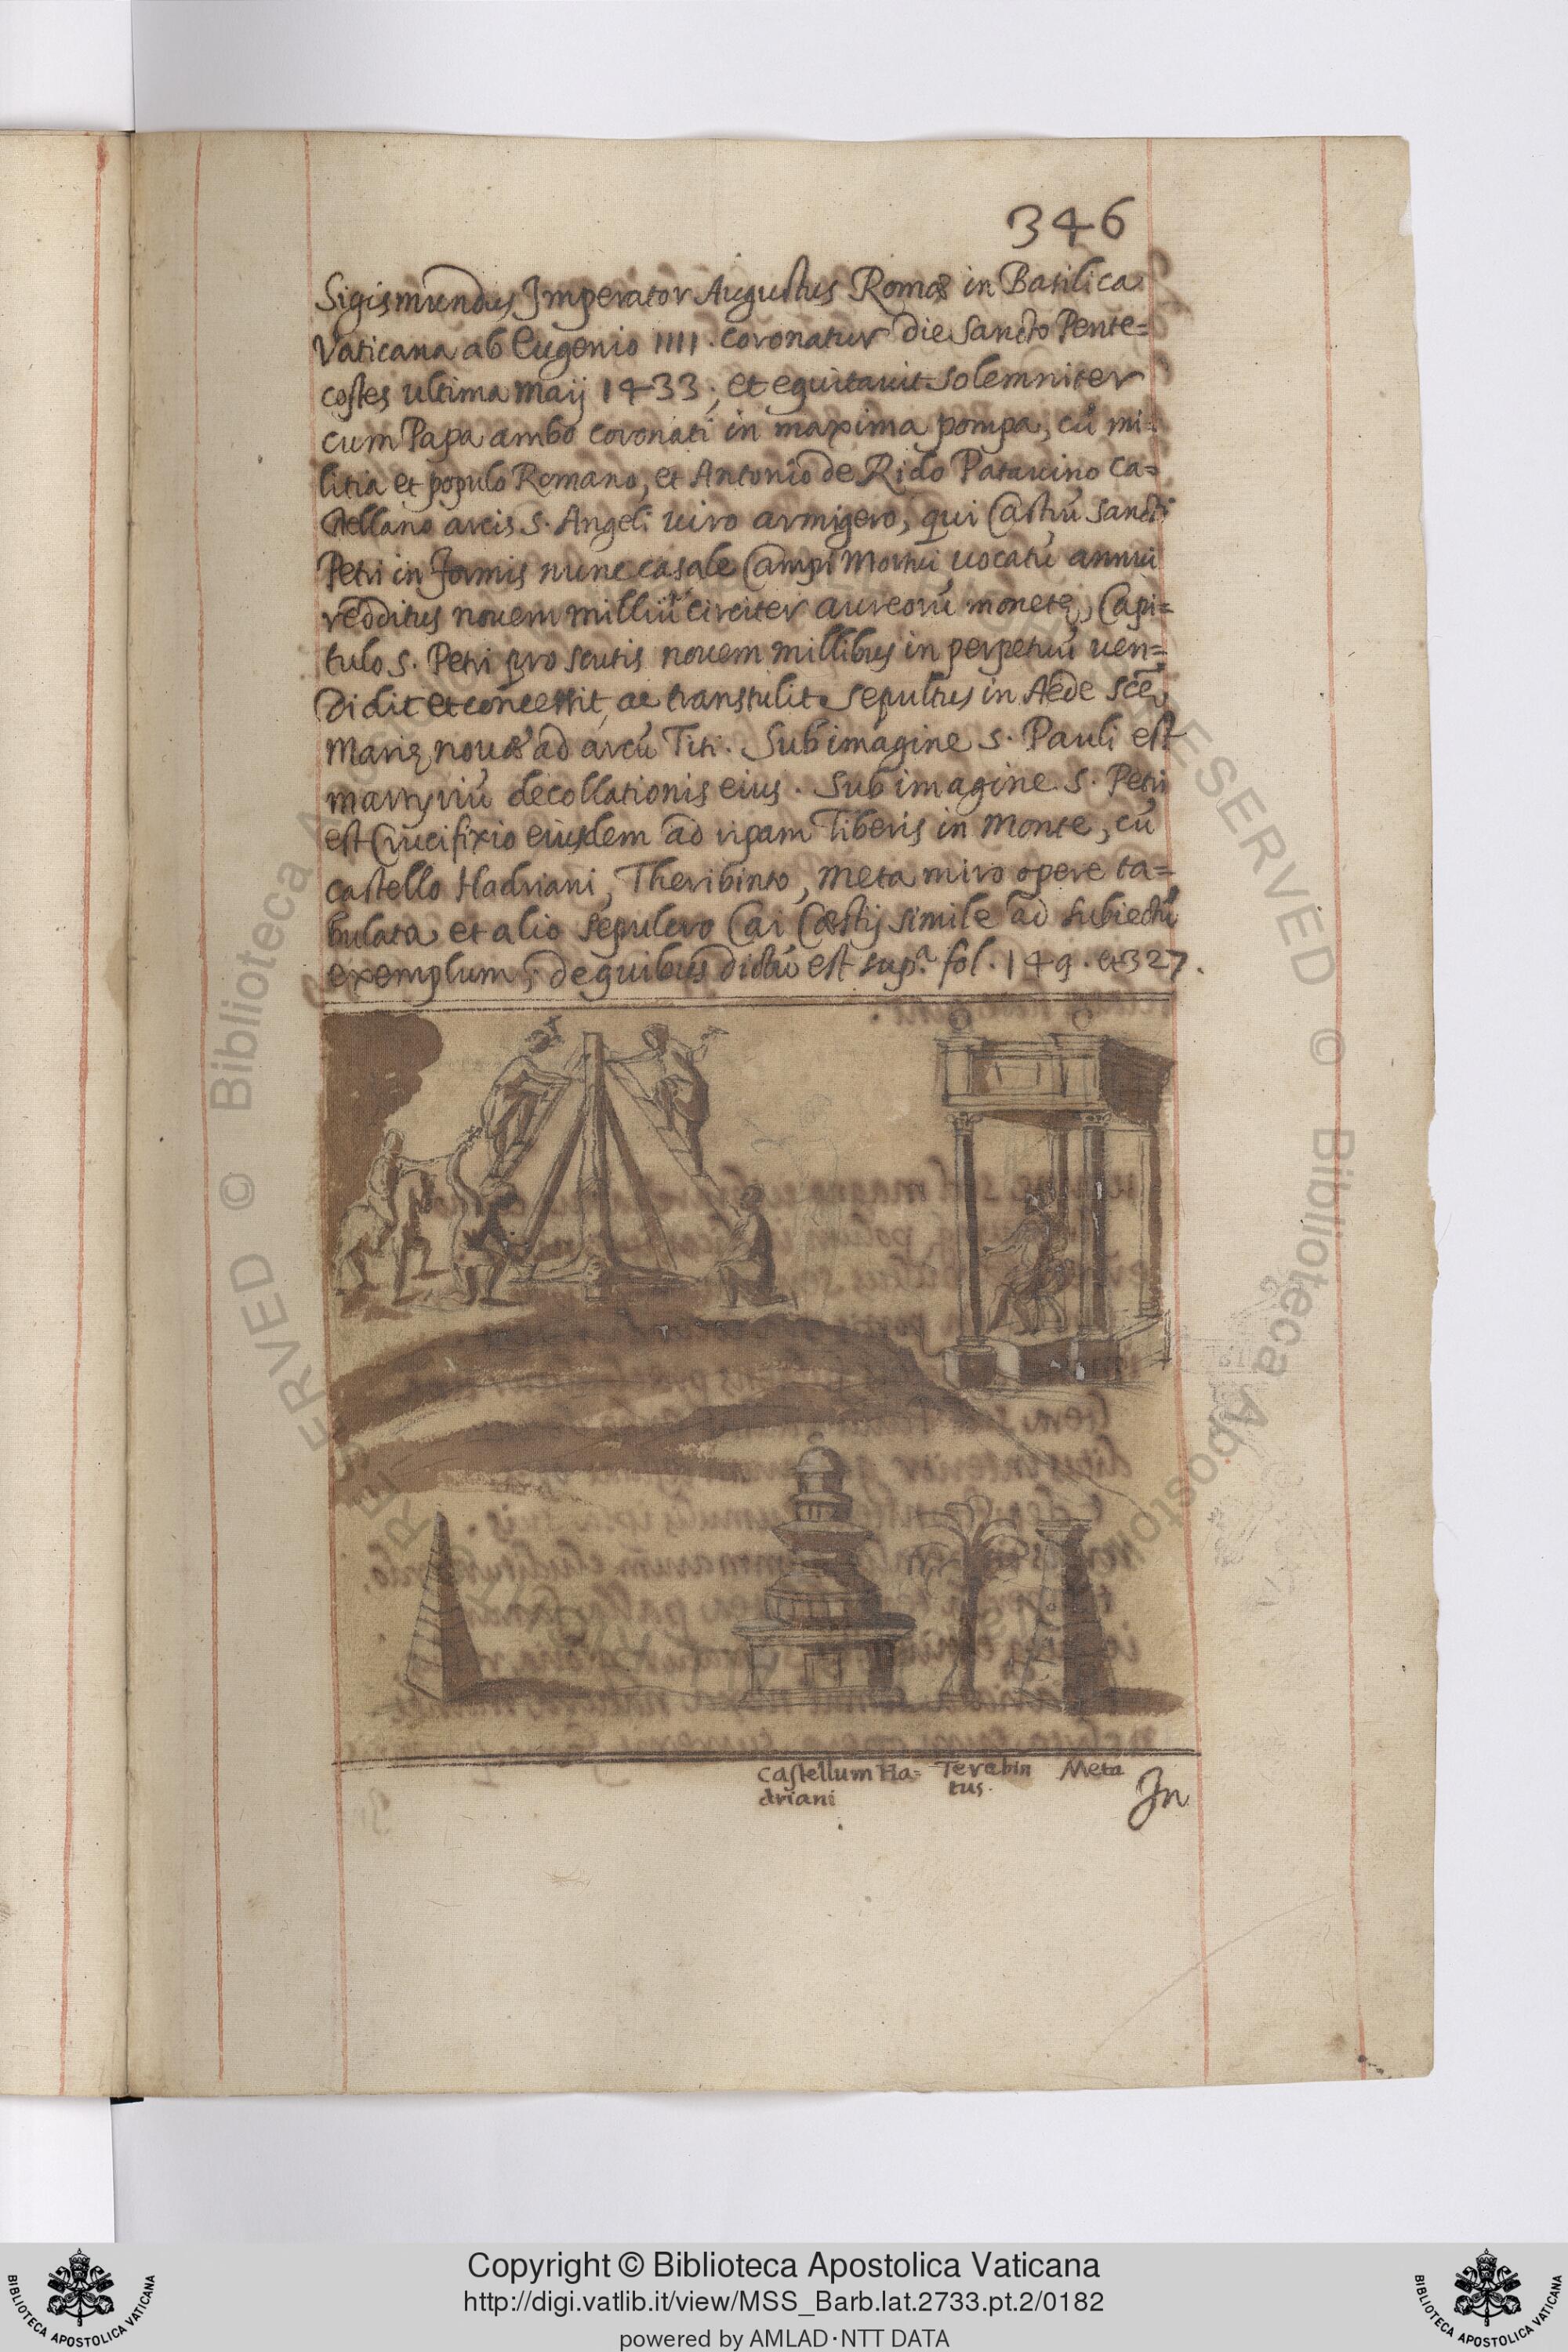 346
Sigismundus Imperator Augustus Romæ in Basilica
Vaticana ab Eugenio IIII. coronatur die sancto Pente=
costes ultima maij 1433; et equitauit solemniter
cum Papa ambo coronati in maxima pompa, cū mi=
litia et populo Romano, et Antonio de Rido Patauino ca=
stellano arcis S. Angeli uiro armigero, qui Castrū sancti
Petri in formis nunc casale Campi Mortui uocatū annui
redditus nouem milliū circiter aureorū monetę, Capi=
tulo S. Petri pro scutis nouem millibus in perpetuū uen=
didit et concessit, ac transtulit. sepultus in Aede scę
Marię nouæ ad arcū Titi. Sub imagine S. Pauli est
martyriū decollationis eius. Sub imagine S. Petri
est Crucifixio eiusdem ad ripam Tiberis in monte, cū
castello Hadriani, Theribinto, meta miro opere ta=
bulata et alio sepulcro Cai Cæstij simile ad subiectū
exemplum, de quibus dictū est supᵃ. fol. 149. et 327.
castellum Ha= Terebin Meta
driani tus.
In
© Biblioteca Apostolica Vaticana
RESERVED
Copyright © Biblioteca Apostolica Vaticana
http://digi.vatlib.it/view/MSS_Barb.lat.2733.pt.2/0182
powered by AMLAD·NTT DATA
BIBLIOTECA APOSTOLICA VATICANA
BIBLIOTECA APOSTOLICA VATICANA